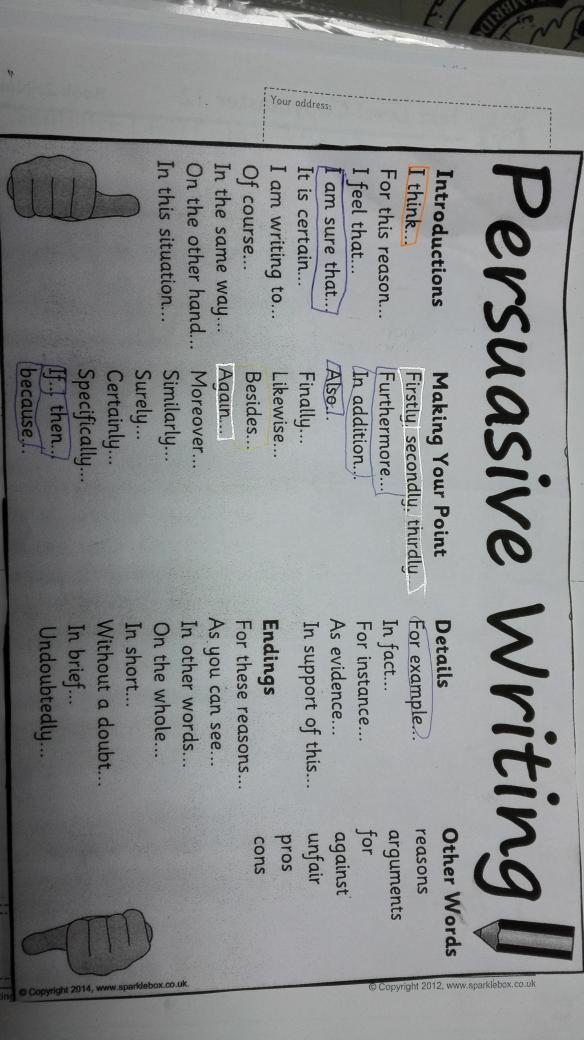 Your address:
Persuasive Writing
Introductions
I think...
For this reason...
I feel that...
I am sure that...
It is certain...
I am writing to...
Of course...
In the same way...
On the other hand...
In this situation...
Making Your Point
Firstly, secondly, thirdly...
Furthermore...
In addition...
Also...
Finally...
Likewise...
Besides...
Again...
Moreover...
Similarly...
Surely...
Certainly...
Specifically...
If... then...
because...
Details
For example...
In fact...
For instance...
As evidence...
In support of this...
Endings
For these reasons...
As you can see...
In other words...
On the whole...
In short...
Without a doubt...
In brief...
Undoubtedly...
Other Words
reasons
arguments
for
against
unfair
pros
cons
© Copyright 2012, www.sparklebox.co.uk
© Copyright 2014, www.sparklebox.co.uk.